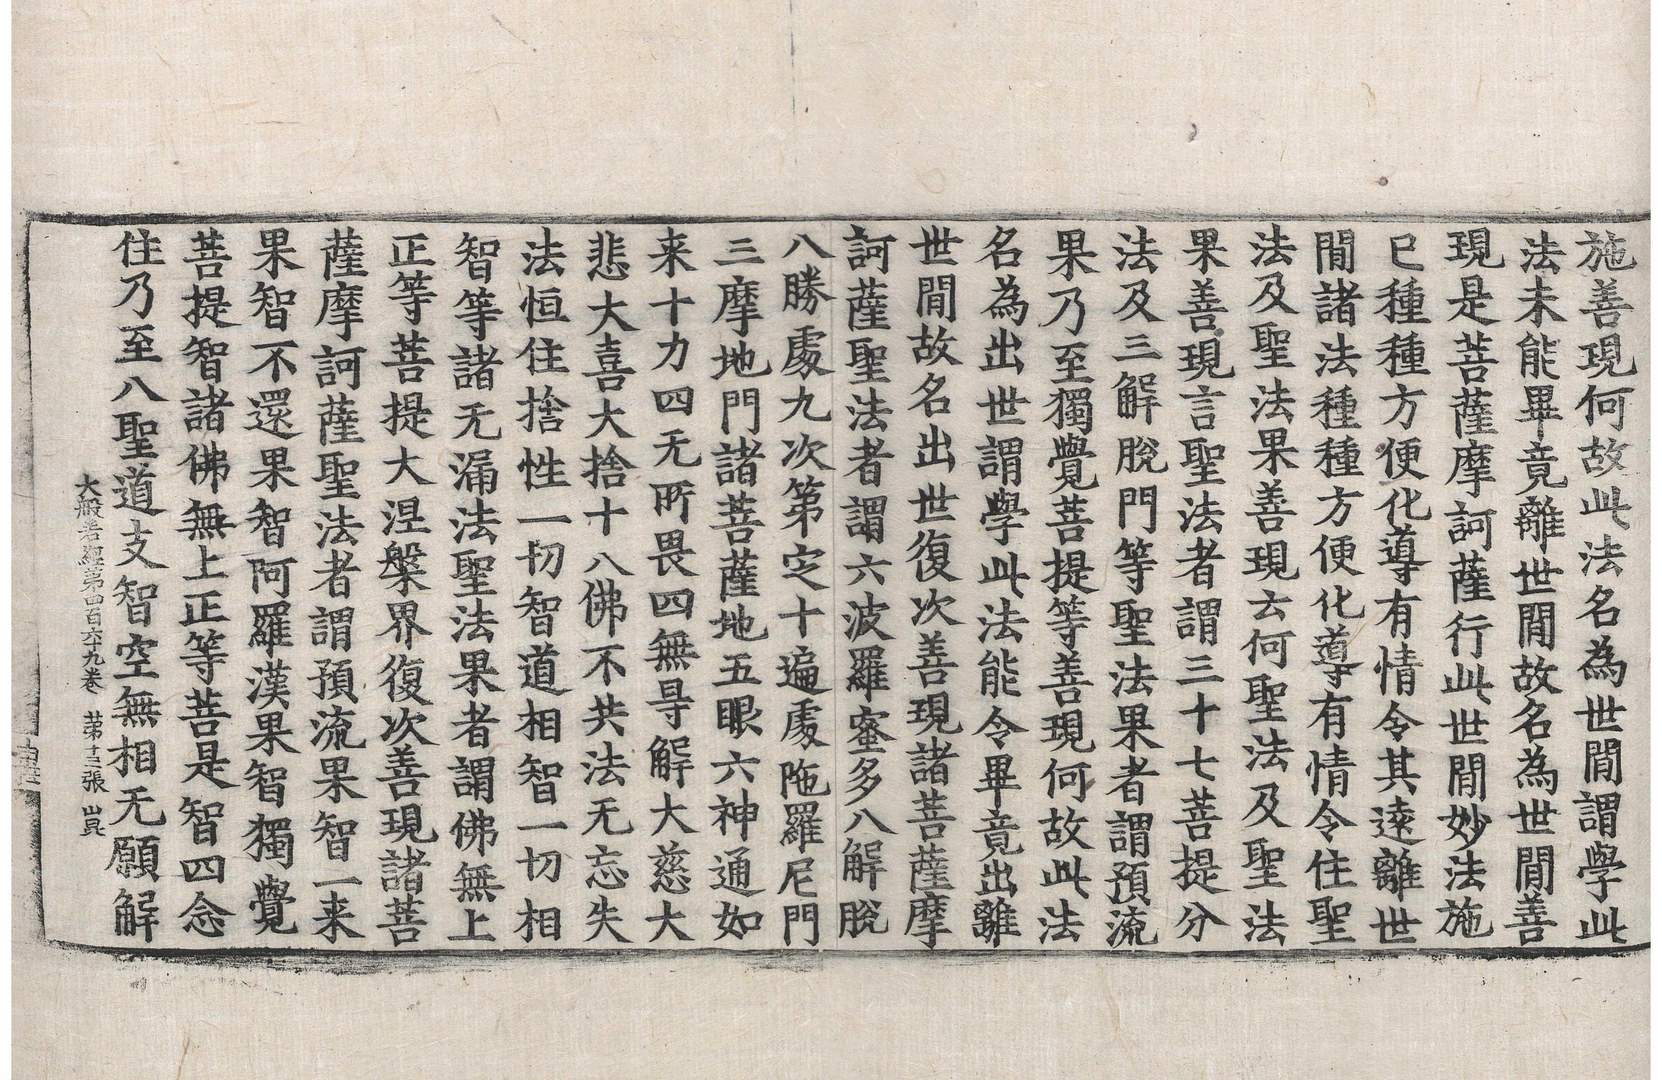 施善現何故此法名為世間謂學此
法未能畢竟離世間故名為世間善
現是菩薩摩訶薩行此世間妙法施
已種種方便化導有情令其遠離世
間諸法種種方便化導有情令住聖
法及聖法果善現云何聖法及聖法
果善現言聖法者謂三十七菩提分
法及三解脫門等聖法果者謂預流
果乃至獨覺菩提等善現何故此法
名為出世謂學此法能令畢竟出離
世間故名出世復次善現諸菩薩摩
訶薩聖法者謂六波羅蜜多八解脫
八勝處九次第定十遍處陁羅尼門
三摩地門諸菩薩地五眼六神通如
来十力四无所畏四無㝵解大慈大
悲大喜大捨十八佛不共法无忘失
法恒住捨性一切智道相智一切相
智等諸无漏法聖法果者謂佛無上
正等菩提大涅槃界復次善現諸菩
薩摩訶薩聖法者謂預流果智一来
果智不還果智阿羅漢果智獨覺
菩提智諸佛無上正等菩是智四念
住乃至八聖道支智空無相无願解
大般若經第四百六十九卷 苐十三張